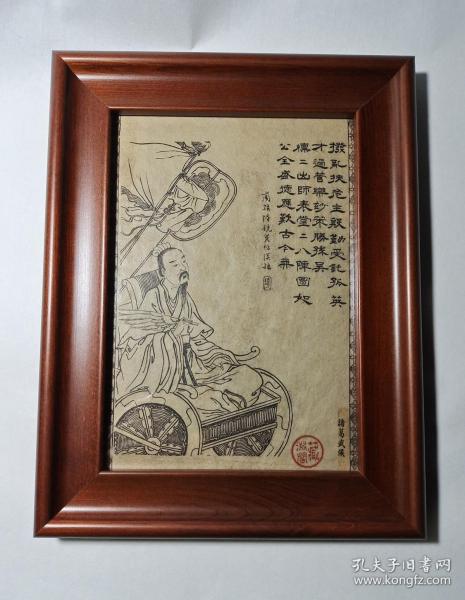 撥亂扶危主殷勤受託孤英
才過管樂妙策勝孫吳
凜二出師表堂二八陣圖如
公全盛德應歎古今無
諸葛武侯
孔夫子旧书网
www.kongfz.com